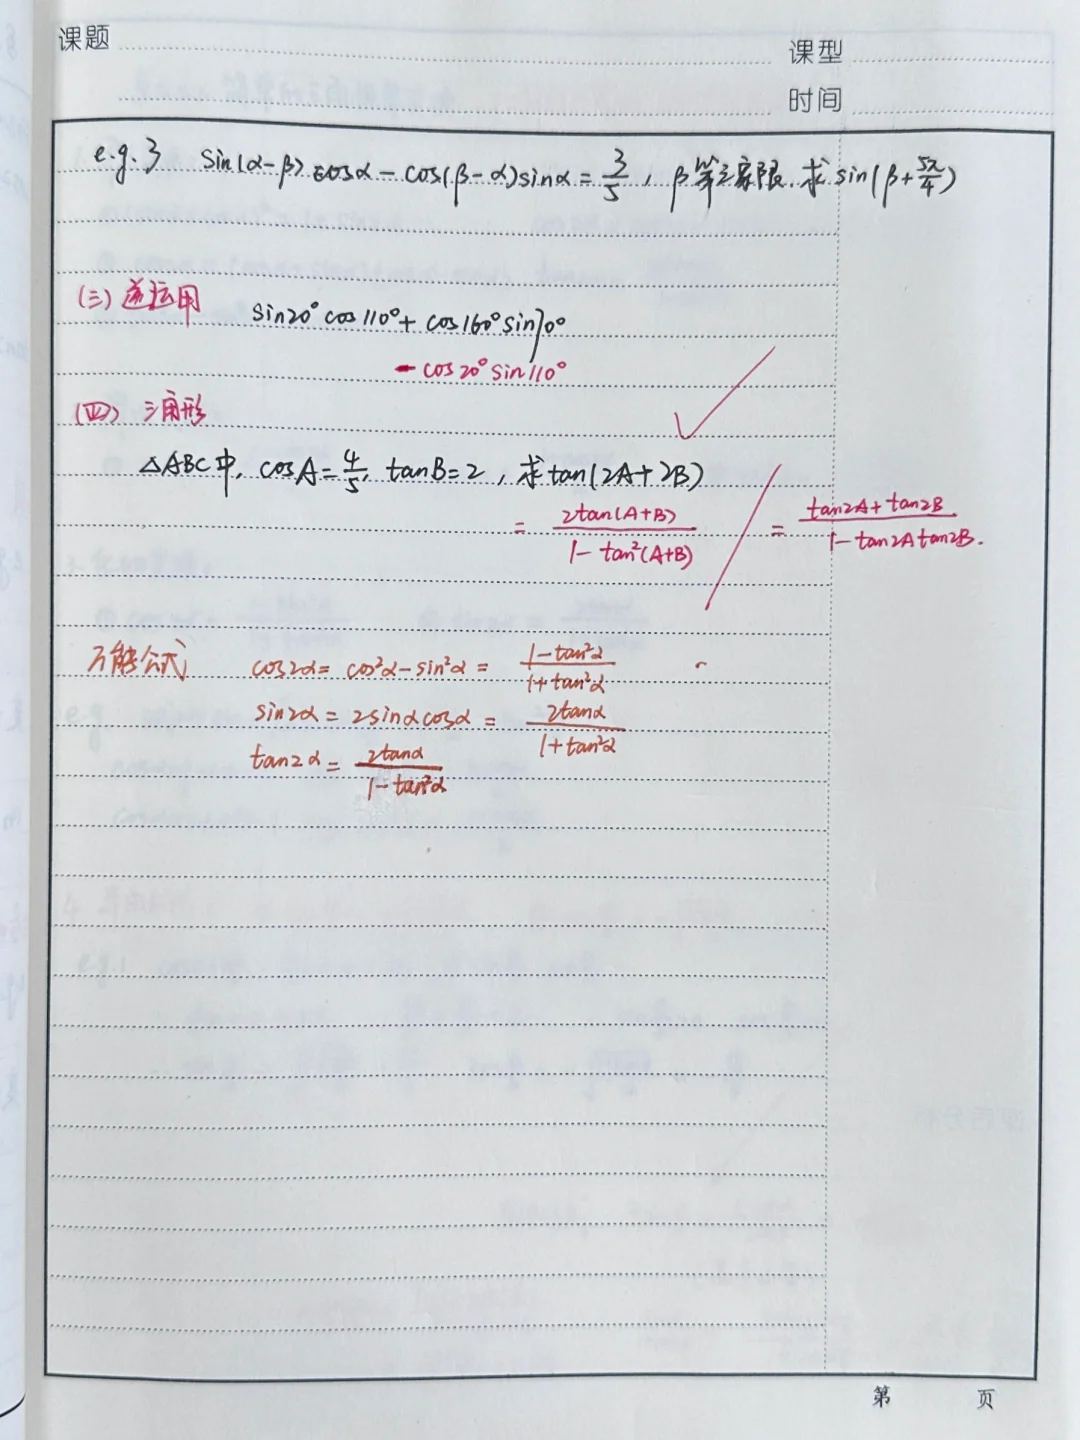 课题
课型
时间
e.g.3 sin(α-β)cosα-cos(β-α)sinα=3/5, β第三象限. 求sin(β+5π/4)
(三) 逆运用 sin20°cos110°+cos160°sin70°
-cos20°sin110°
(四) 三角形
△ABC中, cosA=4/5, tanB=2, 求tan(2A+2B)
= 2tan(A+B)/(1-tan²(A+B)) = (tan2A+tan2B)/(1-tan2Atan2B).
万能公式 cos2α=cos²α-sin²α=(1-tan²α)/(1+tan²α)
sin2α=2sinαcosα=2tanα/(1+tan²α)
tan2α=2tanα/(1-tan²α)
第 页